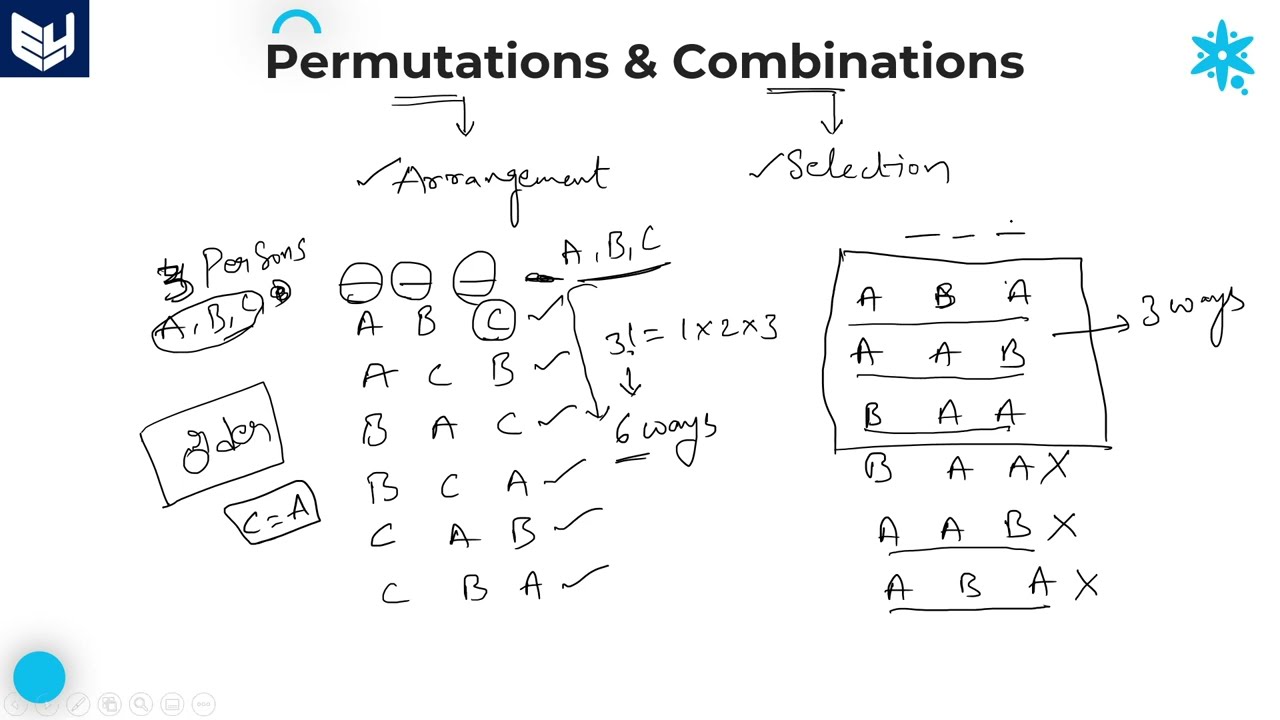 Permutations & Combinations
Arrangement
Selection
3 Persons
A, B, C
A, B, C
A B C
A C B
B A C
B C A
C A B
C B A
3! = 1 x 2 x 3
6 ways
C = A
A B A
A A B
B A A
3 ways
B A A X
A A B X
A B A X